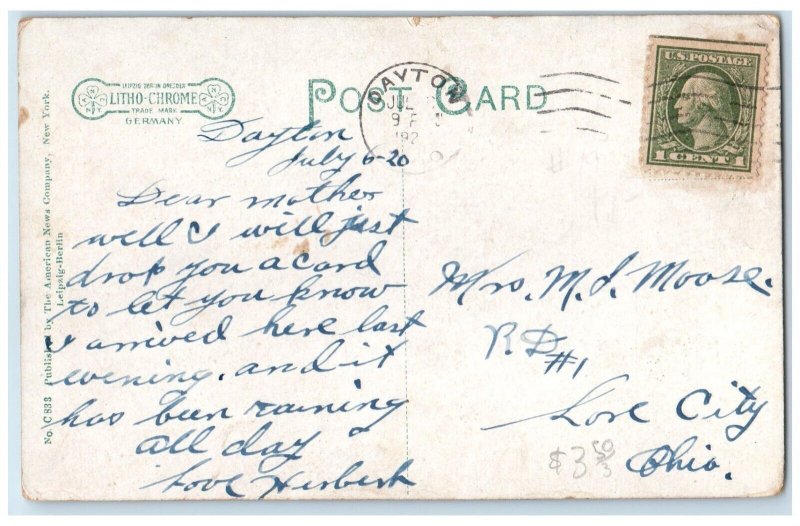 LEIPZIG BERLIN DRESDEN
LITHO-CHROME
TRADE MARK
GERMANY
POST CARD
DAYTON
JUL
9 P
192
U.S. POSTAGE
1 CENT 1
No. C 833 Published by The American News Company, New York.
Leipzig-Berlin
Dayton
July 6-20
Dear mother
well I will just
drop you a card
to let you know
I arrived here last
evening. and it
has been raining
all day
Love Herbert
Mrs. M. J. Moose.
R.D. #1
Lore City
Ohio.
$3 50
3